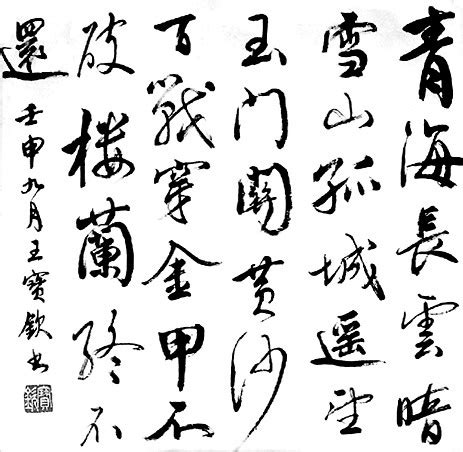 青海長雲暗
雪山孤城遥望
玉門關黄沙
百戰穿金甲不
破楼蘭終不
還
壬申九月王寶欽書